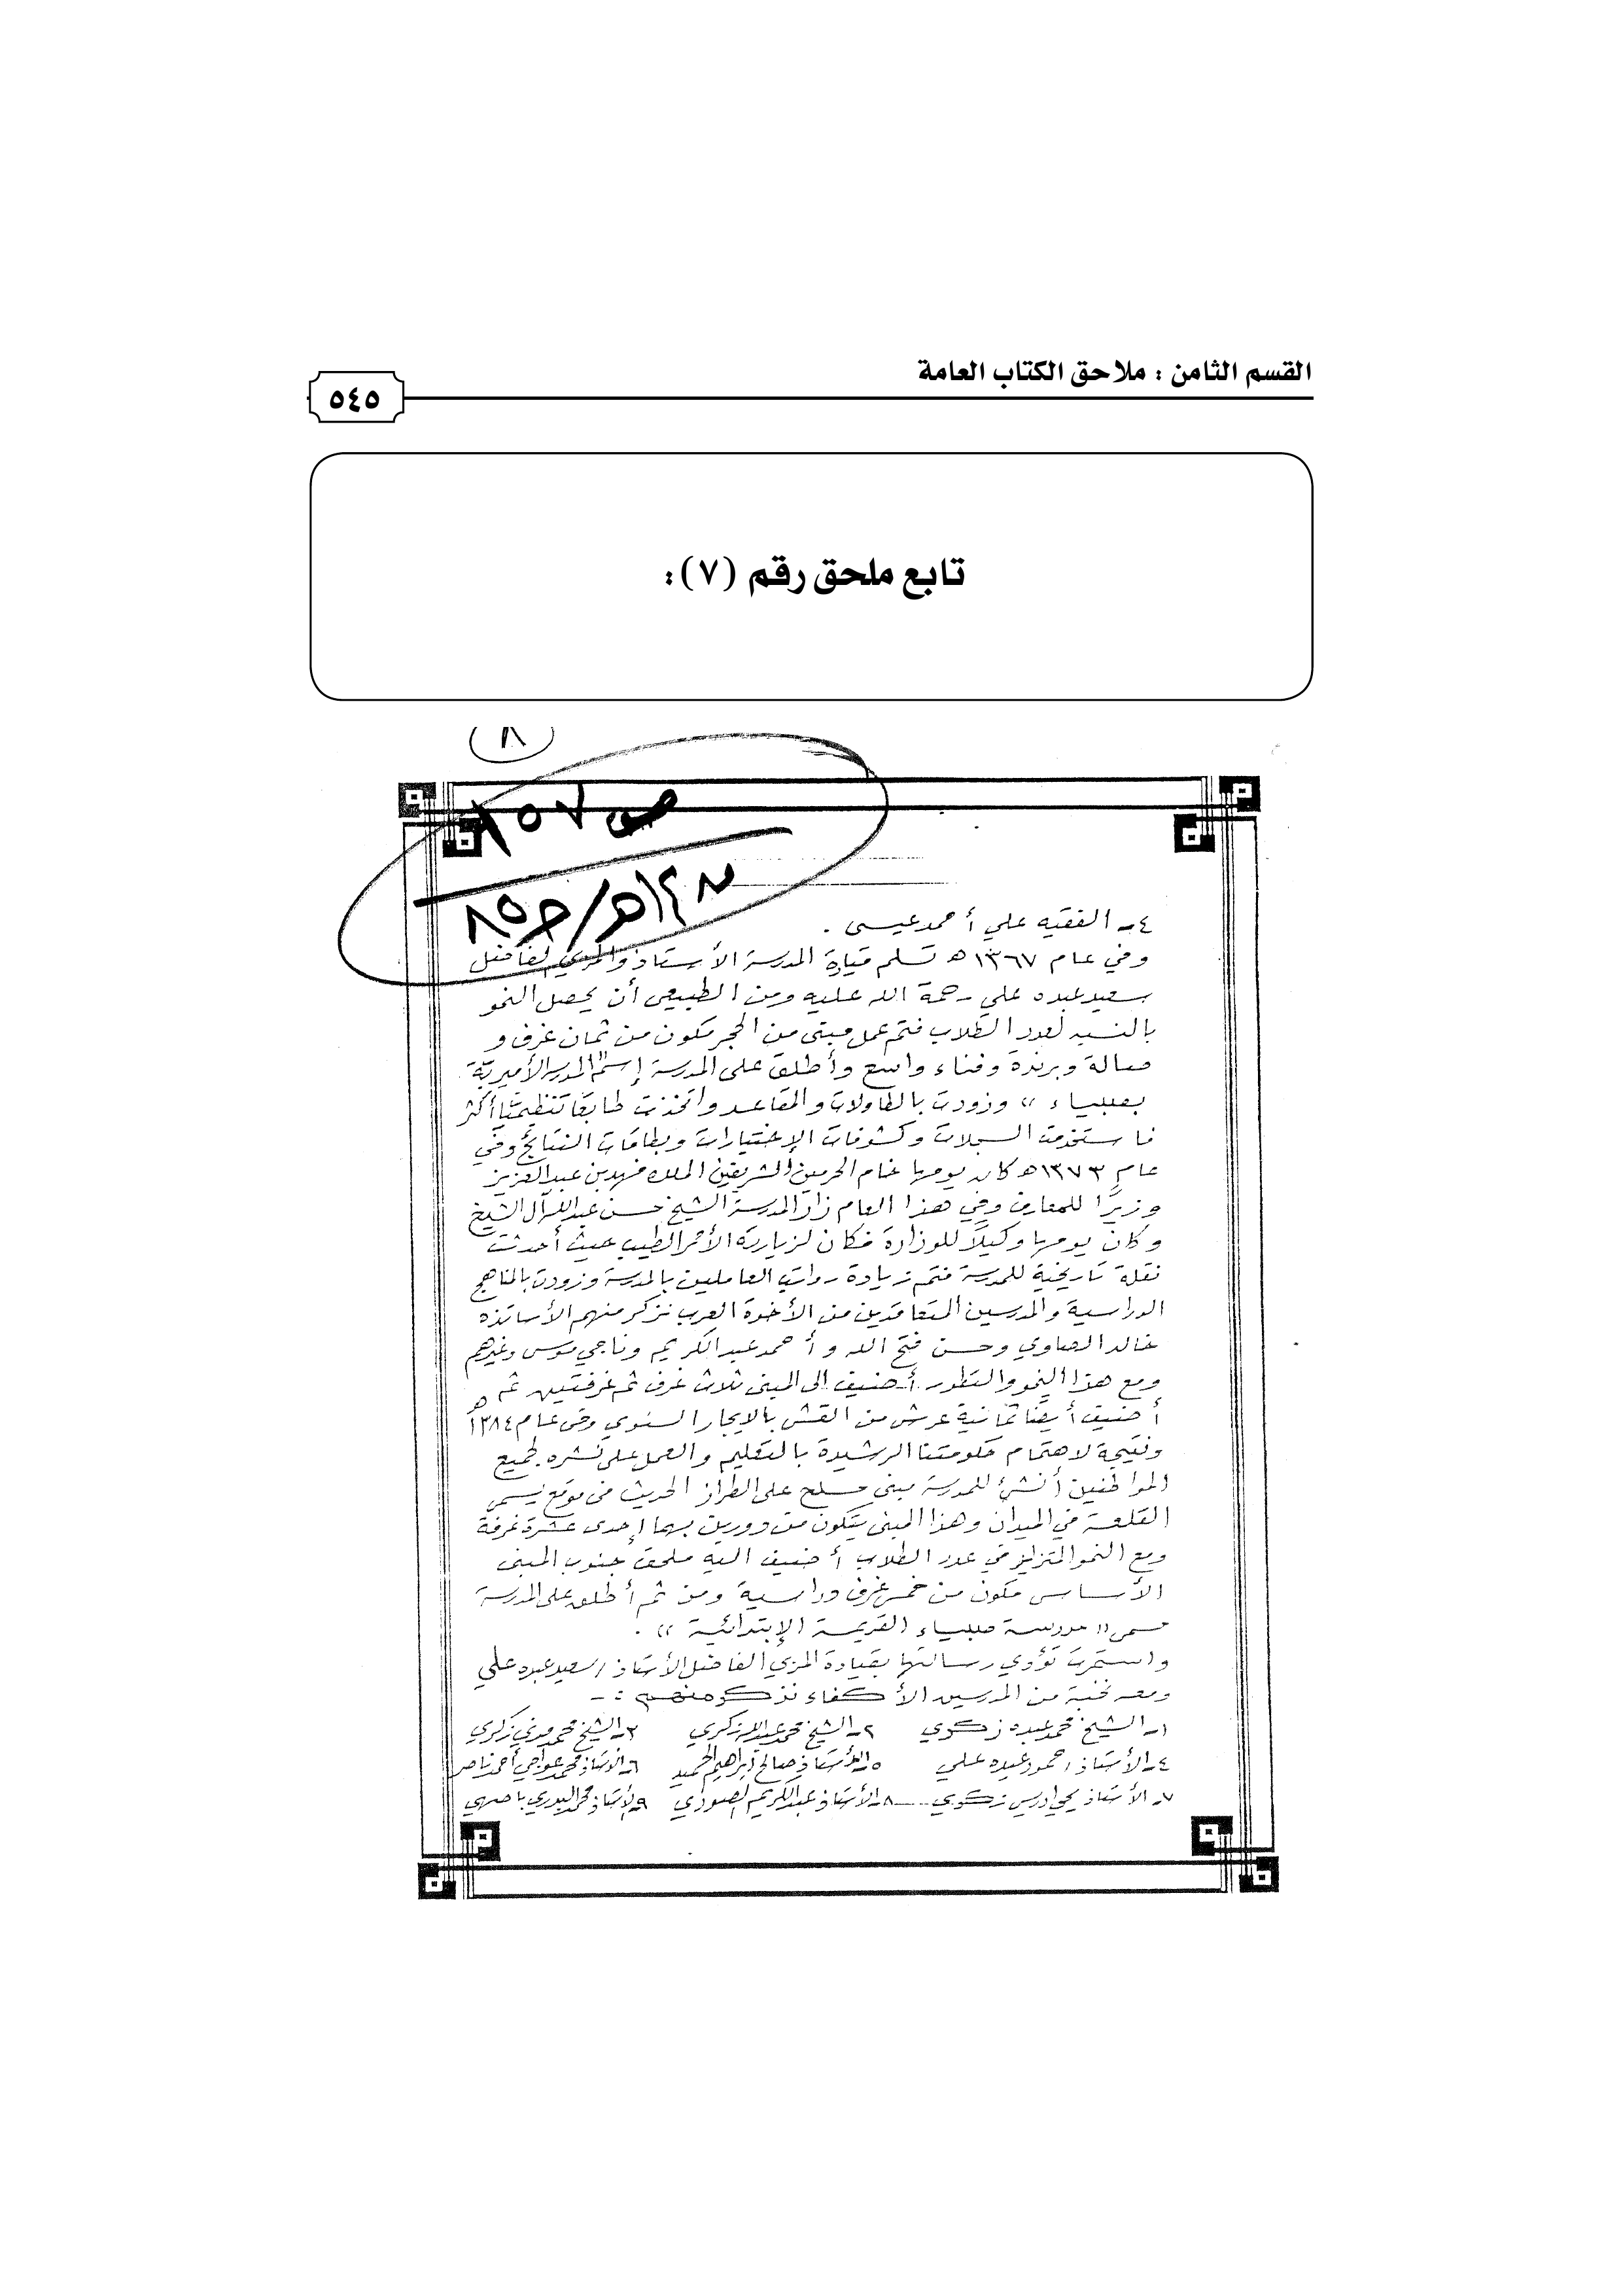 القسم الثامن : ملاحق الكتاب العامة
٥٤٥
تابع ملحق رقم (٧):
(٨)
ص
٤ـ الفقيه علي أحمد عيسى .
وفي عام ١٣٦٧هـ تسلم قيادة المدرسة الأستاذ والمربي الفاضل
سعيد عبده علي رحمة الله عليه ومن الطبيعي أن يحصل النمو
بالنسبه لعدد الطلاب فتم عمل مبنى من الحجر مكون من ثمان غرف و
صالة وبرندة وفناء واسع وأطلق على المدرسة إسم "المدرسة الأميرية
بصبياء" وزودت بالطاولات والمقاعد واتخذت طابعًا تنظيميًا أكثر
فاستخدمت السجلات وكشوفات الإختبارات وبطاقات النتائج وفي
عام ١٣٧٣هـ كان يومها خادم الحرمين الشريفين الملك فهد بن عبد العزيز
وزيرًا للمعارف وفي هذا العام زار المدرسة الشيخ حسن عبد الله آل الشيخ
وكان يومها وكيلًا للوزارة فكان لزيارته الأثر الطيب حيث أحدثت
نقلة تاريخية للمدرسة فتم زيادة رواتب العاملين بالمدرسة وزودت بالمناهج
الدراسية والمدرسين المتعاقدين من الأخوة العرب نذكر منهم الأساتذه
خالد الصاوي وحسن فتح الله وأحمد عبد الكريم وناجي موسى وغيرهم
ومع هذا النمو والتطور أضيف الى المبنى ثلاث غرف ثم غرفتين ثم
أضيف أيضًا ثمانية عرش من القش بالايجار السنوي وفي عام ١٣٨٤هـ
ونتيجة لاهتمام حكومتنا الرشيدة بالتعليم والعمل على نشره لجميع
المواطنين أنشئ للمدرسة مبنى مسلح على الطراز الحديث في موقع يسمى
القلعة في الميدان وهذا المبنى يتكون من دورين بهما إحدى عشرة غرفة
ومع النمو المتزايد في عدد الطلاب أضيف اليه ملحق جنوب المبنى
الأساسي مكون من خمس غرف دراسية ومن ثم أطلق على المدرسة
مسمى "مدرسة صبياء القديمة الإبتدائية" .
واستمرت تؤدي رسالتها بقيادة المربي الفاضل الأستاذ/ سعيد عبده علي
ومعه نخبة من المدرسين الأكفاء نذكر منهم :ـ
١ـ الشيخ محمد عبده زكري ٢ـ الشيخ محمد عبد الله زكري ٣ـ الشيخ محمد مدني زكري
٤ـ الأستاذ/ حمود عبده علي ٥ـ الأستاذ صالح ابراهيم الحميد ٦ـ الأستاذ محمد عواجي أحمد ناصر
٧ـ الأستاذ يحي ادريس زكري ٨ـ الأستاذ عبد الكريم ٩ـ الأستاذ محمد البدري